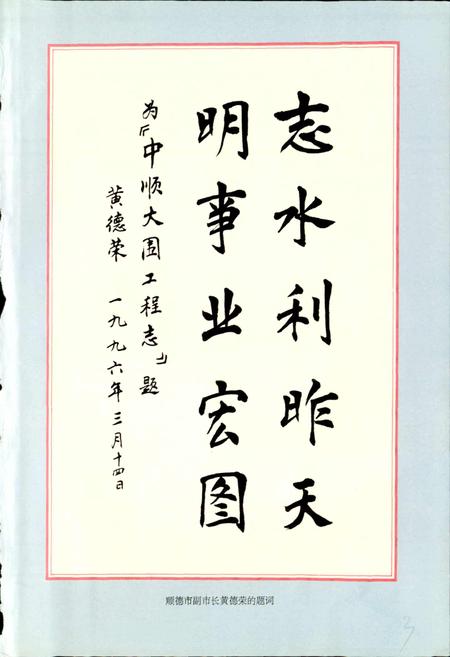 志水利昨天
明事业宏图
为『中顺大围工程志』题
黄德荣 一九九六年三月十四日
顺德市副市长黄德荣的题词
3